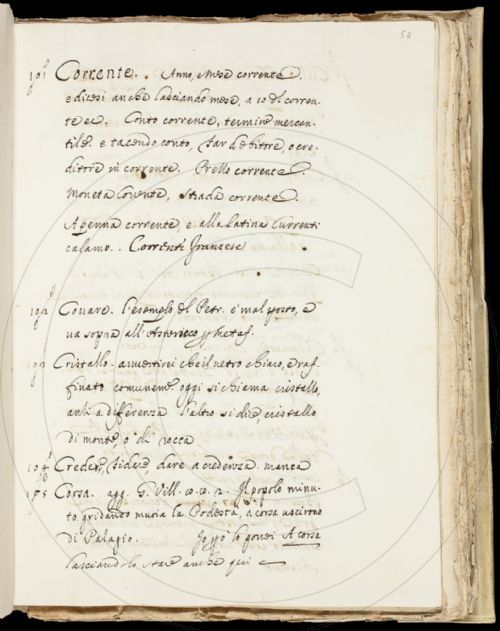 52
Corrente. Anno, e Mese corrente.
e dicesi anche lasciando mese, a 10 del corren-
te &c. Conto corrente, termine mercan-
tile. e tacendo conto, star debitore, o cre-
ditore in corrente. Prezzo corrente.
Moneta corrente, strada corrente.
A penna corrente, e alla latina Currenti
calamo.. Correnti Franzese
Covare. l'esempio del Petr. è mal posto, e
va sopra all'Asterisco metaf.
Cristallo. avvertirei che il vetro chiaro, e raf-
finato comunem. oggi si chiama cristallo,
anzi a differenza l'altro si dice, cristallo
di monte, o di rocca
Credere, fidare, dare a credenza. manca
Corsa. agg. G. Vill. 10. 2. Il popolo minu-
to gridando muoia la Podestà, a corsa uscirono
di Palagio. Io lo porrei A corsa
lasciandolo stare anche qui